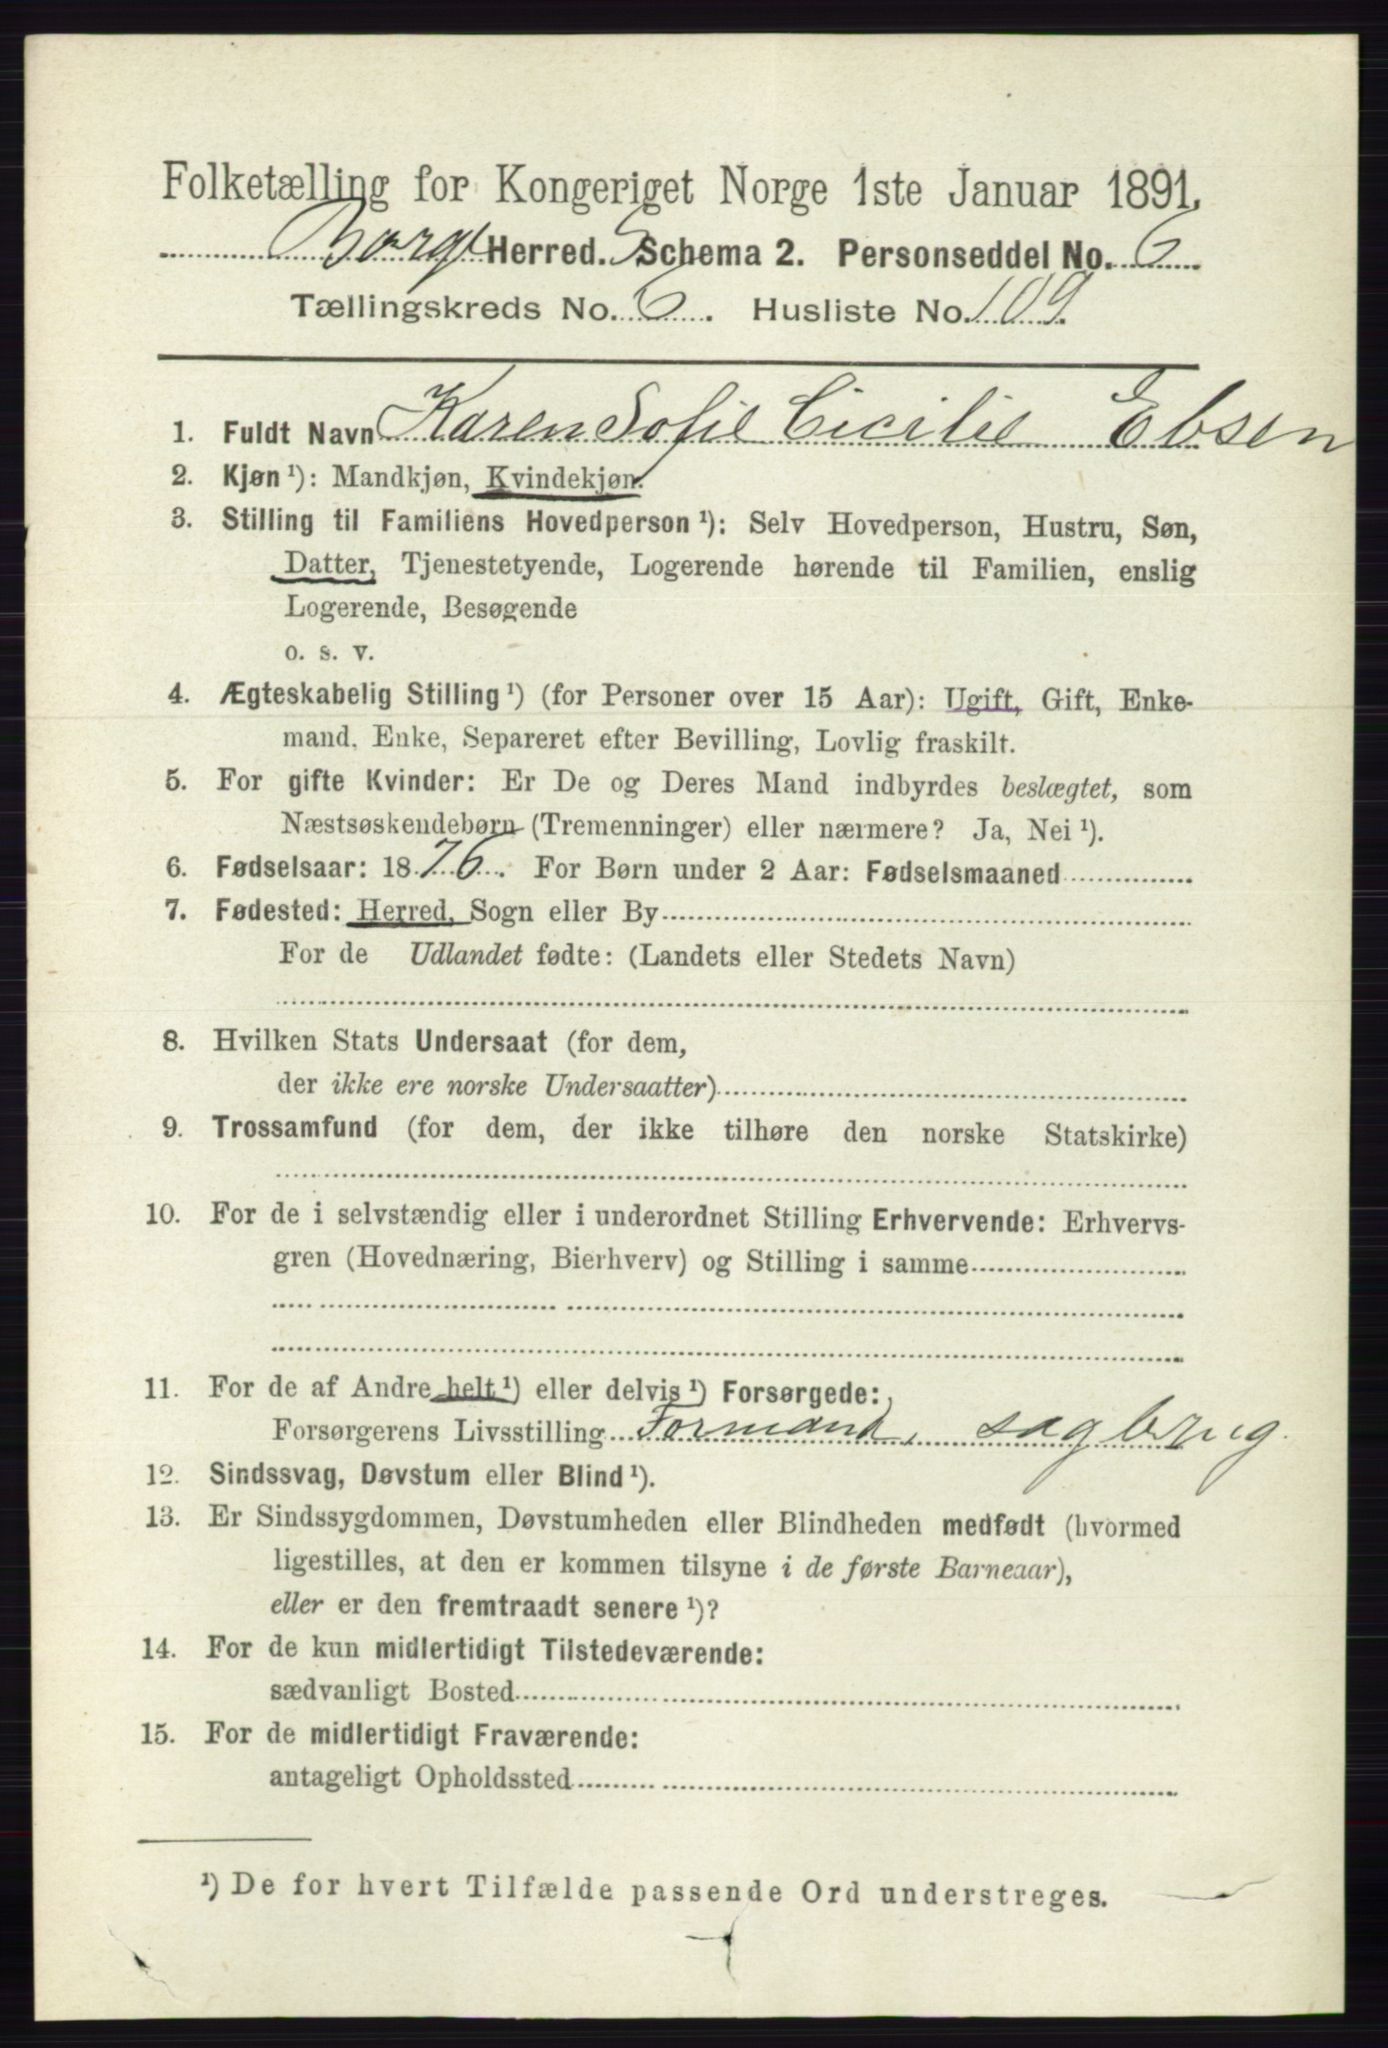 Folketælling for Kongeriget Norge 1ste Januar 1891.
Borge Herred. Schema 2. Personseddel No. 6
Tællingskreds No. 6. Husliste No. 109
1. Fuldt Navn Karen Sofie Cicilie Ebsen
2. Kjøn ¹): Mandkjøn, Kvindekjøn.
3. Stilling til Familiens Hovedperson ¹): Selv Hovedperson, Hustru, Søn,
Datter, Tjenestetyende, Logerende hørende til Familien, enslig
Logerende, Besøgende
o. s. v.
4. Ægteskabelig Stilling ¹) (for Personer over 15 Aar): Ugift, Gift, Enke-
mand, Enke, Separeret efter Bevilling, Lovlig fraskilt.
5. For gifte Kvinder: Er De og Deres Mand indbyrdes beslægtet, som
Næstsøskendebørn (Tremenninger) eller nærmere? Ja, Nei ¹).
6. Fødselsaar: 1876. For Børn under 2 Aar: Fødselsmaaned
7. Fødested: Herred, Sogn eller By
For de Udlandet fødte: (Landets eller Stedets Navn)
8. Hvilken Stats Undersaat (for dem,
der ikke ere norske Undersaatter)
9. Trossamfund (for dem, der ikke tilhøre den norske Statskirke)
10. For de i selvstændig eller i underordnet Stilling Erhvervende: Erhvervs-
gren (Hovednæring, Bierhverv) og Stilling i samme
11. For de af Andre helt ¹) eller delvis ¹) Forsørgede:
Forsørgerens Livsstilling Formand, sagbrug.
12. Sindssvag, Døvstum eller Blind ¹).
13. Er Sindssygdommen, Døvstumheden eller Blindheden medfødt (hvormed
ligestilles, at den er kommen tilsyne i de første Barneaar),
eller er den fremtraadt senere ¹)?
14. For de kun midlertidigt Tilstedeværende:
sædvanligt Bosted
15. For de midlertidigt Fraværende:
antageligt Opholdssted
¹) De for hvert Tilfælde passende Ord understreges.